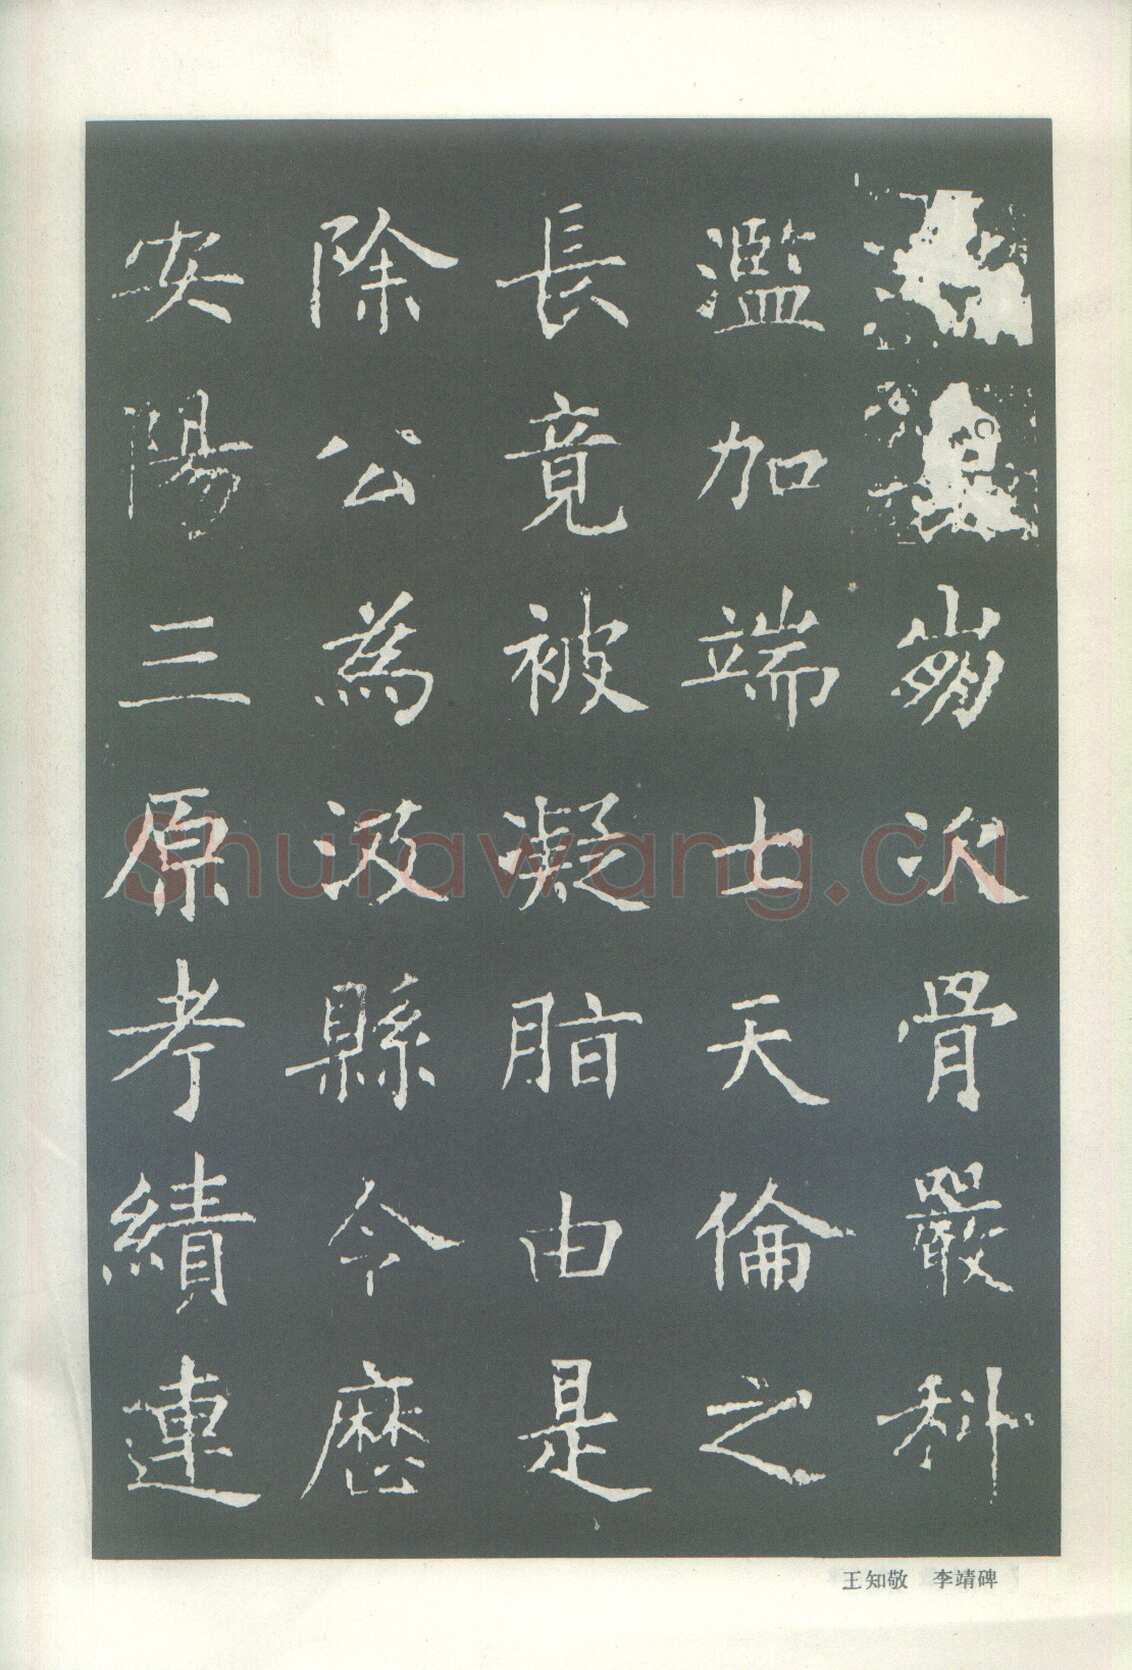 次骨嚴科
濫加端士天倫之
長竟被凝脂由是
除公為汲縣令歷
安陽三原考績連
王知敬 李靖碑
Shufawang.cn